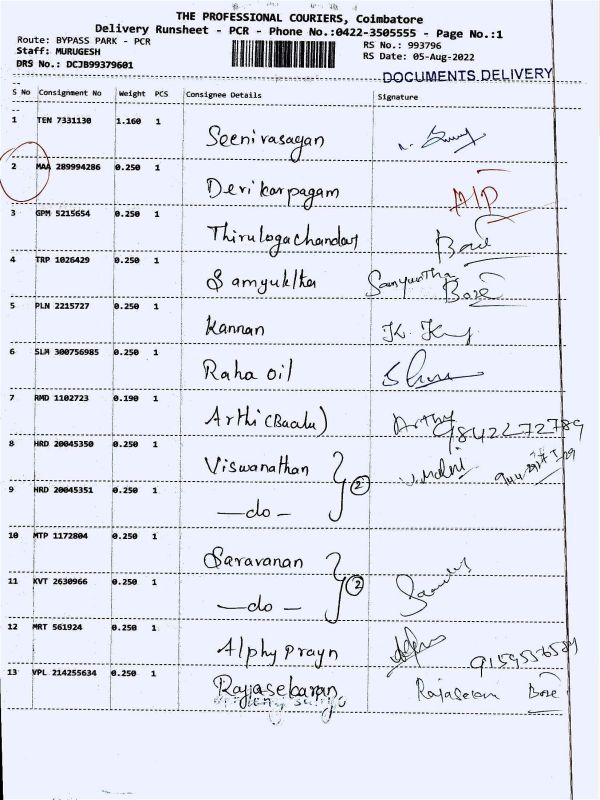 THE PROFESSIONAL COURIERS, Coimbatore
Delivery Runsheet - PCR - Phone No.:0422-3505555 - Page No.:1
Route: BYPASS PARK - PCR
RS No.: 993796
Staff: MURUGESH
RS Date: 05-Aug-2022
DRS No.: DCJB99379601
DOCUMENTS DELIVERY
S No Consignment No Weight PCS Consignee Details Signature
1 TEN 7331130 1.160 1 Seenivasagan
2 MAA 289994286 0.250 1 Devikarpagam
3 GPM 5215654 0.250 1 Thirulogachandar Bose
4 TRP 1026429 0.250 1 Samyuktha Samyuktha Bose
5 PLN 2215727 0.250 1 Kannan
6 SLM 300756985 0.250 1 Raha oil
7 RMD 1102723 0.190 1 Arthi (Baalu) Arthy
9842272789
8 HRD 20045350 0.250 1 Viswanathan
9 HRD 20045351 0.250 1 —do— 2
10 MTP 1172804 0.250 1 Saravanan
11 KVT 2630966 0.250 1 —do— 2
12 MRT 561924 0.250 1 Alphy Prayn
13 VPL 214255634 0.250 1 Rajasekaran Bose